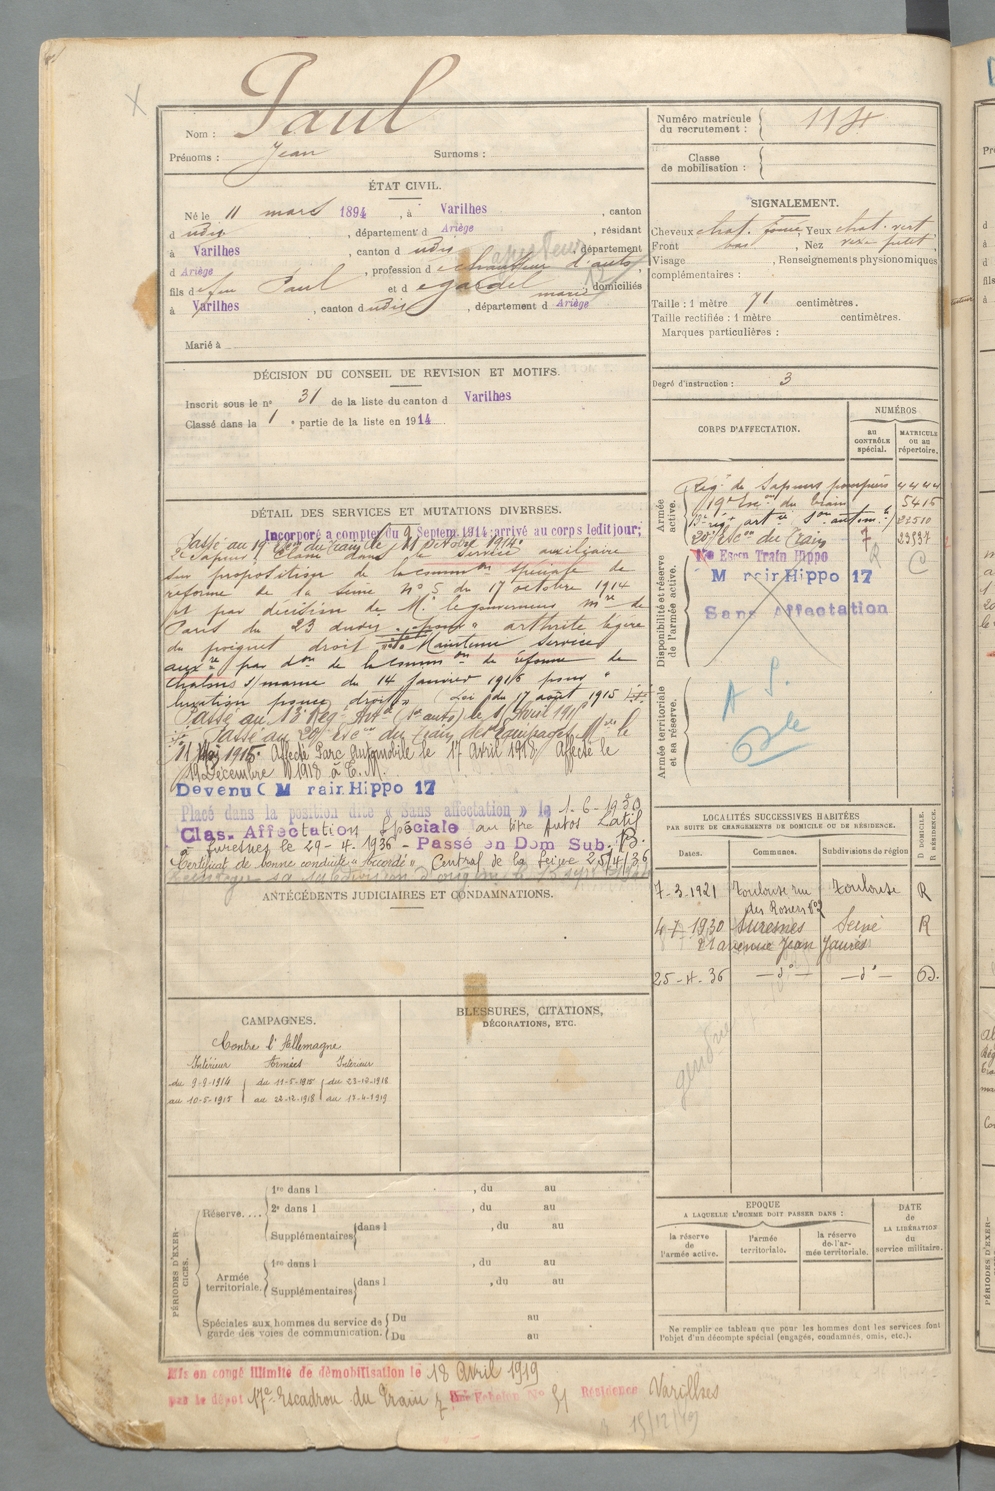 Nom : Paul
Prénoms : Jean Surnoms :
Numéro matricule du recrutement :
Classe de mobilisation :
ÉTAT CIVIL.
Né le 11 mars 1894, à Varilhes, canton
d udit, département d Ariège, résidant
à Varilhes, canton d udit, département
d Ariège, profession de chauffeur d'auto
fils de feu Paul et de domiciliés
à Varilhes, canton dudit, département d Ariège
Marié à
SIGNALEMENT.
Cheveux chat. Yeux chat. vert
Front bas, Nez
Visage, Renseignements physionomiques
complémentaires :
Taille : 1 mètre 71 centimètres.
Taille rectifiée : 1 mètre centimètres.
Marques particulières :
Degré d'instruction : 3
DÉCISION DU CONSEIL DE REVISION ET MOTIFS.
Inscrit sous le no 31 de la liste du canton d Varilhes
Classé dans la 1e partie de la liste en 1914
CORPS D'AFFECTATION.
NUMÉROS
au CONTRÔLE spécial.
MATRICULE ou au répertoire.
Armée active.
Régt de Sapeurs pompiers 4444
19e Escon du train 5415
art ie autom. 22510
20e Escon du Train 7
Disponibilité et réserve de l'armée active.
Escn Train Hippo
M Hippo 17
Sans Affectation
Armée territoriale et sa réserve.
DÉTAIL DES SERVICES ET MUTATIONS DIVERSES.
Incorporé à compter du Septem. 1914 arrivé au corps ledit jour;
Passé au 19e du Train le 11 Octobre 1914.
dans le service auxiliaire
sur proposition de la common spéciale de
réforme de la Seine No 5 du 17 octobre 1914
et par décision de M. le gouverneur mre de
Paris du 23 dudit pour arthrite légère
du poignet droit. Maintenu service
auxre par don de la common de réforme de
Chalons s/marne du 14 Janvier 1916 pour
luxation pouce droit (Loi du 17 août 1915)
Passé au Rég. Arte (Son auto) le Avril
Passé au 20e Escon du Train des équipages Mre le
11 1915. Affecté Parc Automobile le 17 Avril 1918 Affecté le
19 Décembre 1918 à E.M.
Devenu C M Hippo 17
Placé dans la position dite « Sans affectation » le 1-6-19
Clas. Affectation Spéciale au titre Autos Latil
à Suresnes le 29-4-1936 - Passé en Dom Sub.
Certificat de bonne conduite « accordé » Central de la Seine 25/4/36
ANTÉCÉDENTS JUDICIAIRES ET CONDAMNATIONS.
LOCALITÉS SUCCESSIVES HABITÉES
PAR SUITE DE CHANGEMENTS DE DOMICILE OU DE RÉSIDENCE.
Dates. Communes. Subdivisions de région D DOMICILE. R RÉSIDENCE.
7-3-1921 Toulouse rue des Rosiers No 2 Toulouse R
4-7-1930 Suresnes Seine R
21 avenue Jean Jaurès
25-4-36 — do — — do — D.
CAMPAGNES.
Contre l'Allemagne
Intérieur Armées Intérieur
du 9-9-1914 du 11-5-1915 du 23-12-1918
au 10-5-1915 au 22-12-1918 au 17-4-1919
BLESSURES, CITATIONS,
DÉCORATIONS, ETC.
PÉRIODES D'EXERCICES.
Réserve....
1re dans l, du au
2e dans l, du au
Supplémentaires dans l, du au
Armée territoriale.
1re dans l, du au
Supplémentaires dans l, du au
Spéciales aux hommes du service de garde des voies de communication.
Du au
Du au
EPOQUE
A LAQUELLE L'HOMME DOIT PASSER DANS :
la réserve de l'armée active.
l'armée territoriale.
la réserve de l'armée territoriale.
DATE de LA LIBÉRATION du service militaire.
Ne remplir ce tableau que pour les hommes dont les services font
l'objet d'un décompte spécial (engagés, condamnés, omis, etc.).
Mis en congé illimité de démobilisation le 18 Avril 1919
par le dépôt 17e Escadron du Train Echelon No 51 Résidence Varilhes